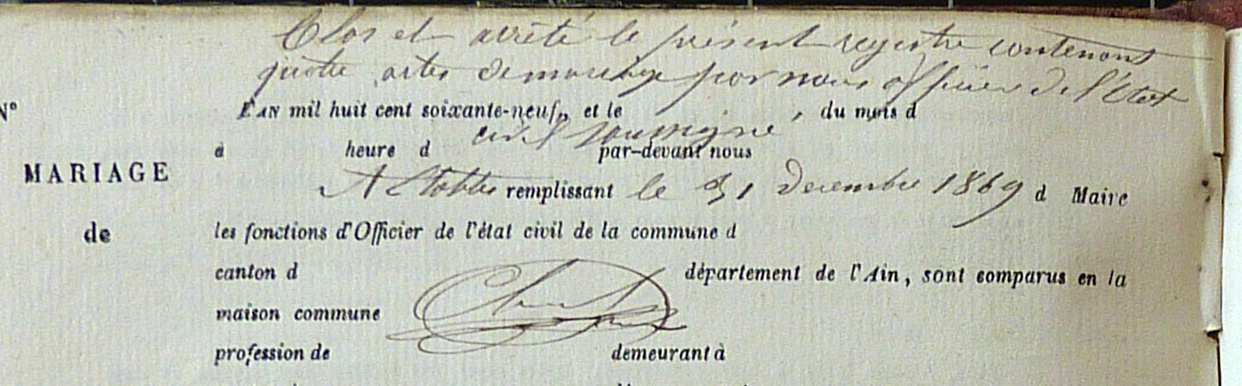 Clos et arrêté le présent registre contenant
quatre actes de mariage par nous officier de l'Etat
N° L'AN mil huit cent soixante-neuf, et le , du mois d
civil soussigné
à heure d par-devant nous
MARIAGE
A Etables remplissant le 31 Decembre 1869 d Maire
de les fonctions d'Officier de l'état civil de la commune d
canton d département de l'Ain, sont comparus en la
maison commune
profession de demeurant à